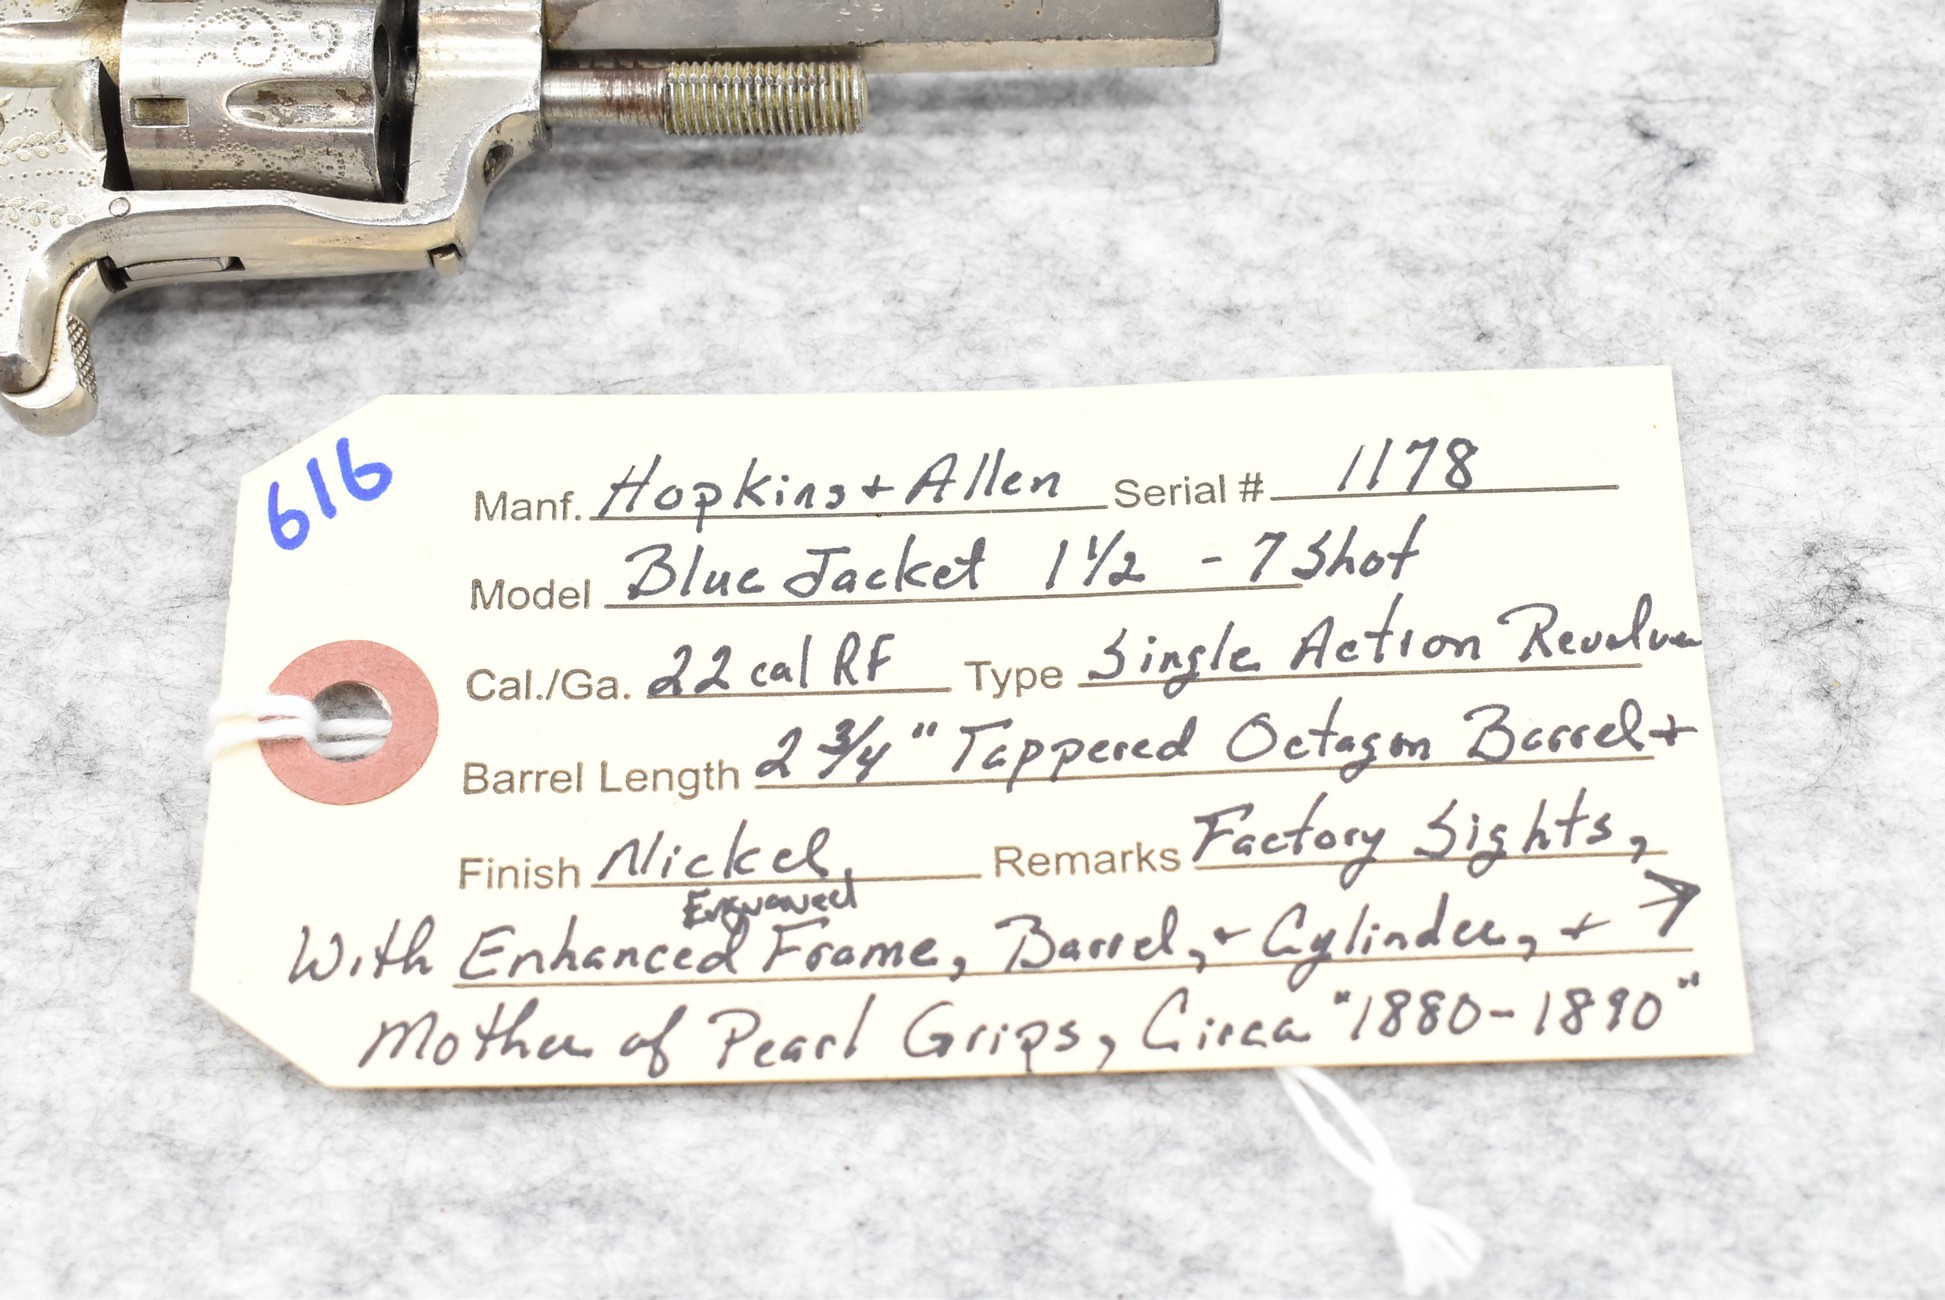 616
Manf. Hopkins + Allen Serial # 1178
Model Blue Jacket 1 1/2 - 7 Shot
Cal./Ga. 22 cal RF Type Single Action Revolver
Barrel Length 2 3/4" Tappered Octagon Barrel +
Finish Nickel, Remarks Factory Sights,
Engraved
With Enhanced Frame, Barrel, + Cylinder, + →
Mother of Pearl Grips, Circa "1880-1890"